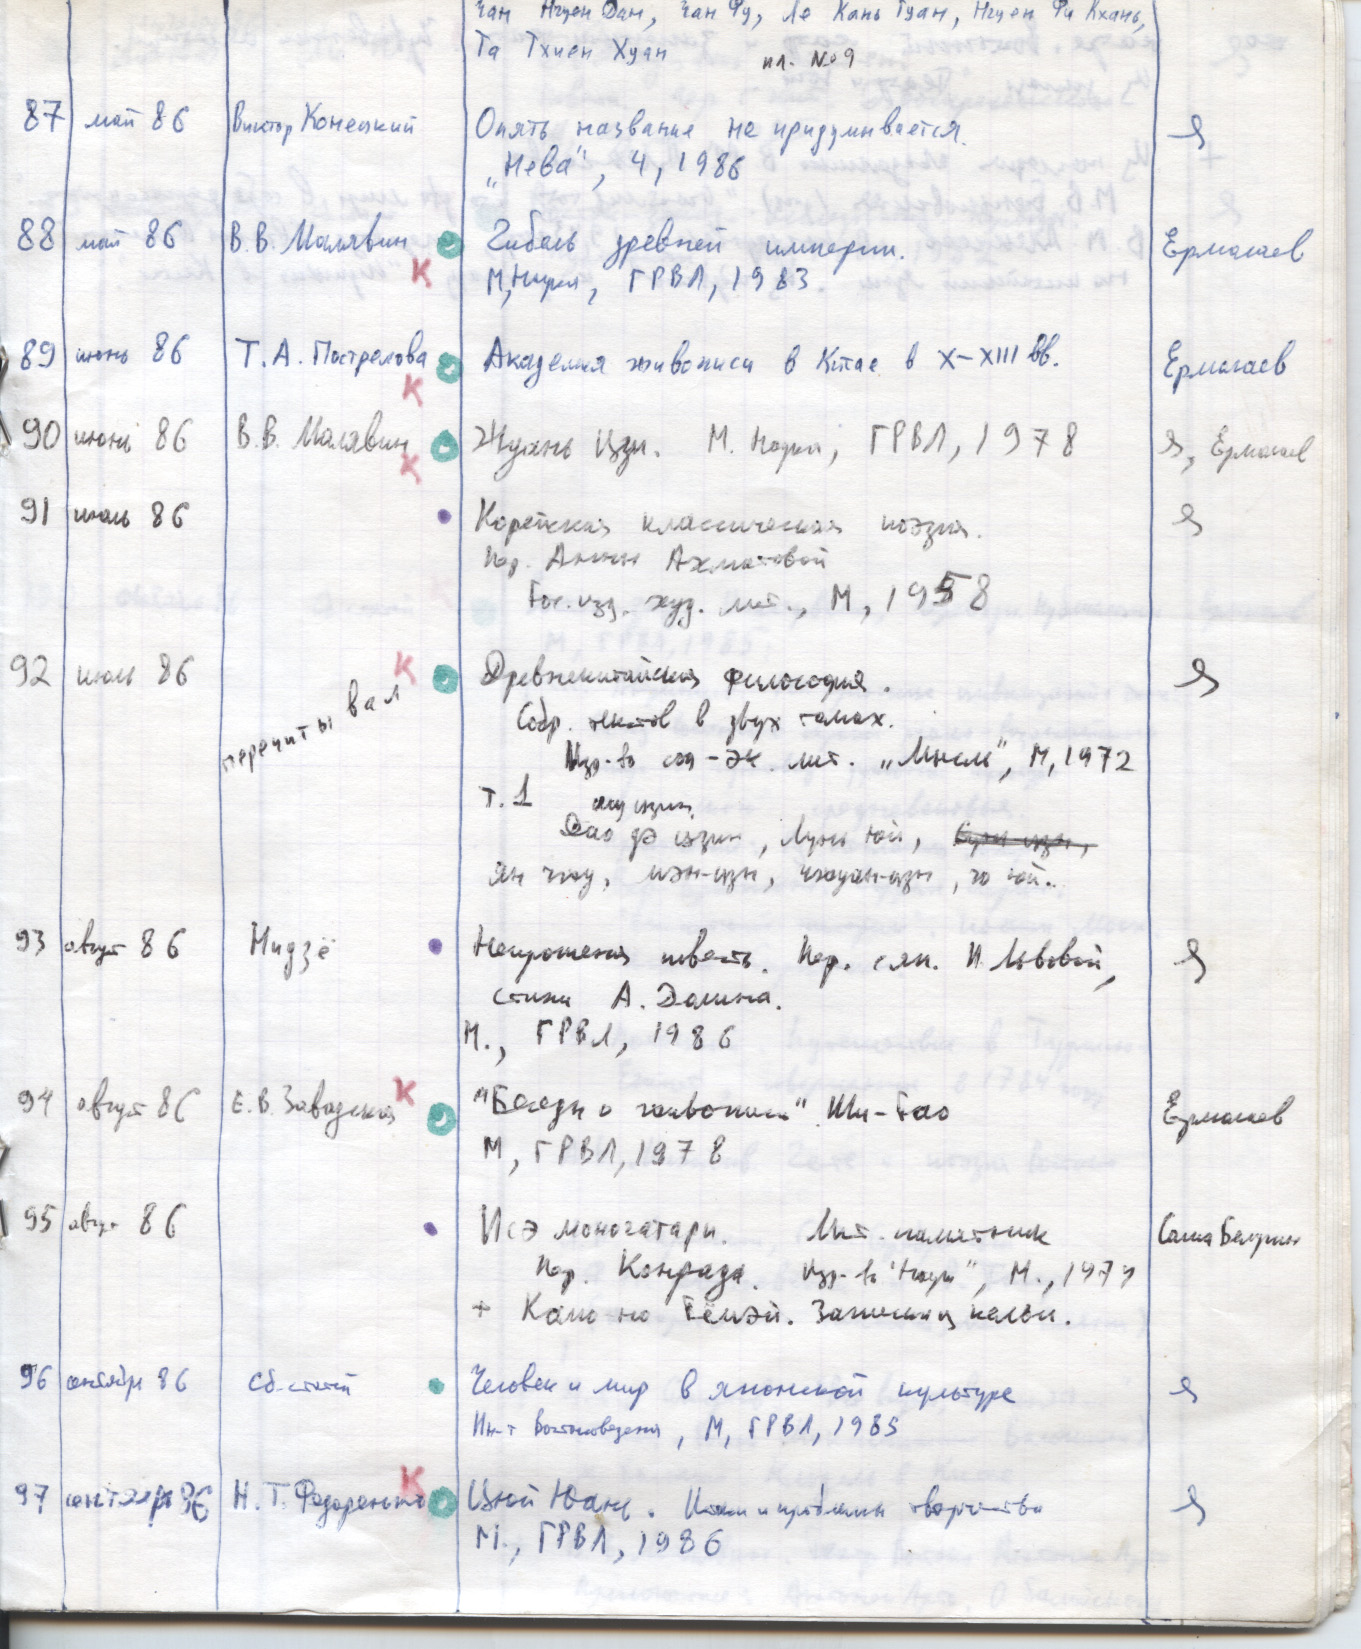 Чан Нгуен Дан, Чан Фу, Ле Кань Туан, Нгуен Фи Кхань,
Та Тхиен Хуан пл. №9
87 май 86 Виктор Конецкий Опять название не придумывается. Я
"Нева", 4, 1986
88 май 86 В.В. Малявин Гибель древней империи. Ермаков
К М, Наука, ГРВЛ, 1983.
89 июнь 86 Т.А. Пострелова Академия живописи в Китае в X-XIII вв. Ермаков
К
90 июнь 86 В.В. Малявин Чжуан Цзы. М. Наука, ГРВЛ, 1978 Я, Ермаков
К
91 июль 86 Корейская классическая поэзия. Я
Пер. Анны Ахматовой
Гос. изд. худ. лит., М, 1958
92 июль 86 К Древнекитайская философия. Я
перечитывал Собр. текстов в двух томах.
Изд-во соц-эк. лит. „Мысль", М, 1972
Т. 1 ши цзин
Дао дэ цзин, Лунь юй,
Ян Чжу, мэн-цзы, чжуан-цзы, го юй..
93 август 86 Нидзё Непрошеная повесть. Пер. с яп. И. Львовой, Я
стихи А. Долина.
М., ГРВЛ, 1986
94 август 86 Е.В. Завадская К "Беседы о живописи" Ши-Тао Ермаков
М, ГРВЛ, 1978
95 август 86 Исэ моногатари. Лит. памятник Саша
Пер. Конрада. Изд-во "Наука", М., 1979
+ Камо-но Тёмэй. Записки из кельи.
96 сентябрь 86 Сб. статей Человек и мир в японской культуре Я
Ин-т Востоковедения, М, ГРВЛ, 1985
97 сентябрь 86 Н.Т. Федоренко К Цюй Юань. Истоки и проблемы творчества Я
М., ГРВЛ, 1986